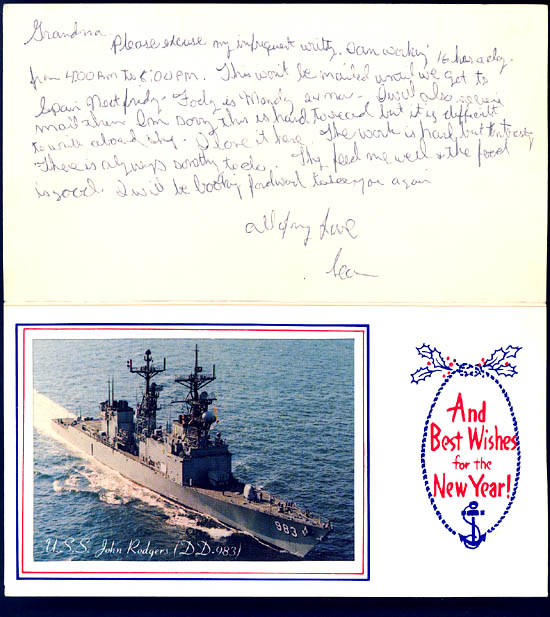 Grandma
Please excuse my infrequent writing. I am working 16 hrs a day.
from 4:00 AM to 8:00 PM. This won't be mailed until we get to
Spain Next friday. Today is Monday. I will also receive
mail then. I'm sorry this is hard to read but it is difficult
to write aboard ship. I love it here. The work is hard but
There is always something to do. They feed me well & the food
is good. I will be looking forward to see you again
All of my Love
Sean
983
U.S.S. John Rodgers (DD-983)
And
Best Wishes
for the
New Year!